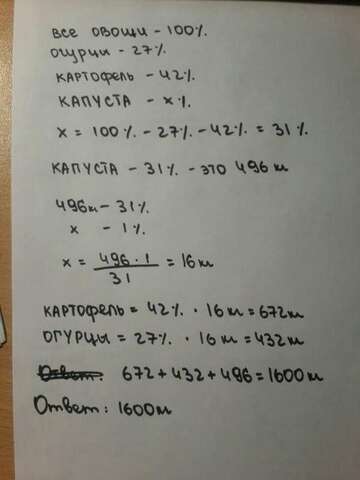 ВСЕ ОВОЩИ - 100%.
ОГУРЦЫ - 27%
КАРТОФЕЛЬ - 42%.
КАПУСТА - х%.
х = 100% - 27% - 42% = 31%
КАПУСТА - 31% - ЭТО 496 м
496м - 31%.
х - 1%.
х = 496 · 1 / 31 = 16м
КАРТОФЕЛЬ = 42% · 16м = 672м
ОГУРЦЫ = 27% · 16м = 432м
Ответ: 672 + 432 + 496 = 1600м
Ответ: 1600м